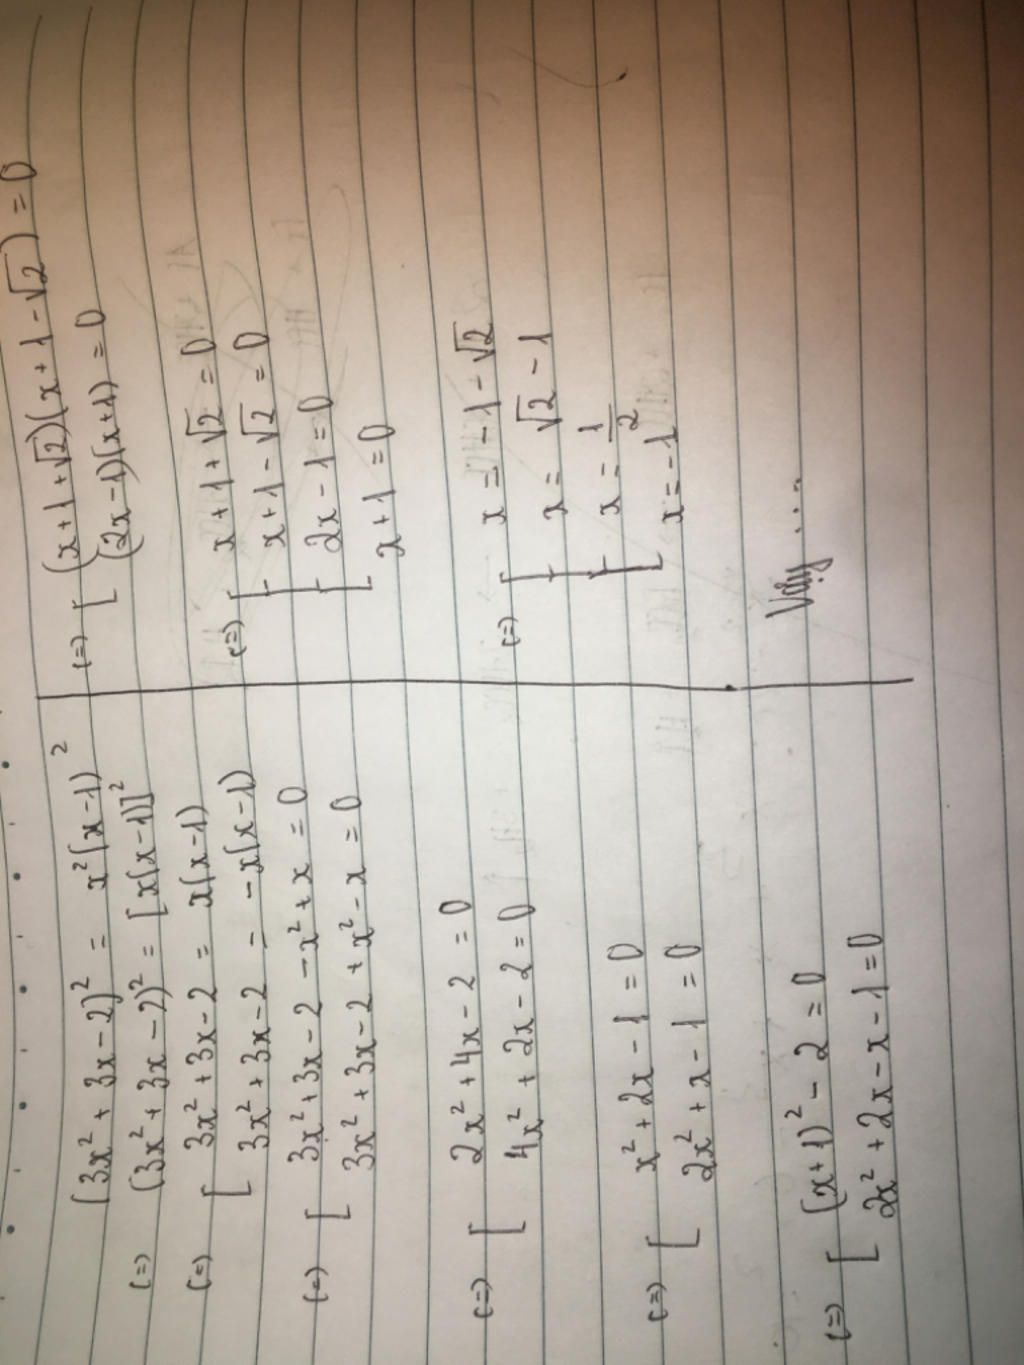 (3x² + 3x - 2)² = x²(x - 1)²
(=) (3x² + 3x - 2)² = [x(x - 1)]²
(=) [ 3x² + 3x - 2 = x(x - 1)
3x² + 3x - 2 = -x(x - 1)
(=) [ 3x² + 3x - 2 - x² + x = 0
3x² + 3x - 2 + x² - x = 0
(=) [ 2x² + 4x - 2 = 0
4x² + 2x - 2 = 0
(=) [ x² + 2x - 1 = 0
2x² + x - 1 = 0
(=) [ (x + 1)² - 2 = 0
2x² + 2x - x - 1 = 0
(=) [ (x + 1 + √2)(x + 1 - √2) = 0
(2x - 1)(x + 1) = 0
(=) [ x + 1 + √2 = 0
x + 1 - √2 = 0
2x - 1 = 0
x + 1 = 0
(=) [ x = -1 - √2
x = √2 - 1
x = 1/2
x = -1
Vậy ....